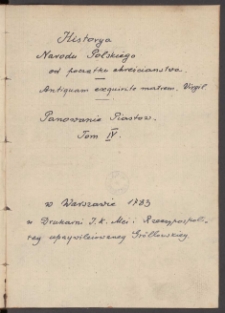 Historya
Narodu Polskiego
od początku chrześciaństwa.
Antiquam exquirite matrem. Virgil.
Panowanie Piastow.
Tom IV.
w Warszawie 1783
w Drukarni J. K. Mci i Rzeczypospoli-
tey uprzywileiowaney Gröllowskiey